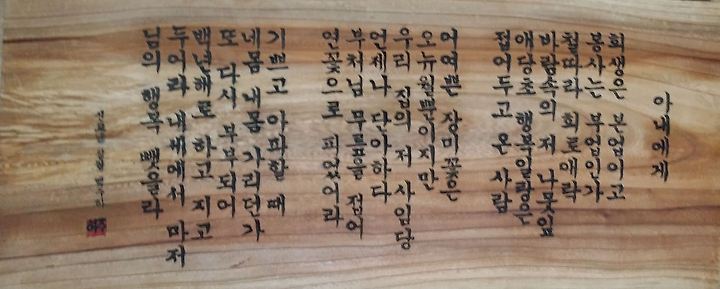 아내에게
희생은 본업이고
봉사는 부업인가
철따라 희로애락
바람속의 저 나뭇잎
애당초 행복일랑은
접어두고 온 사람
어여쁜 장미꽃은
오뉴월뿐이지만
우리 집의 저 사임당
언제나 단아하다
부처님 무릎을 접어
연꽃으로 피었어라
기쁘고 아파할 때
네몸 내몸 가리던가
또 다시 부부되어
백년해로 하고지고
두어라 내세에서 마저
님의 행복